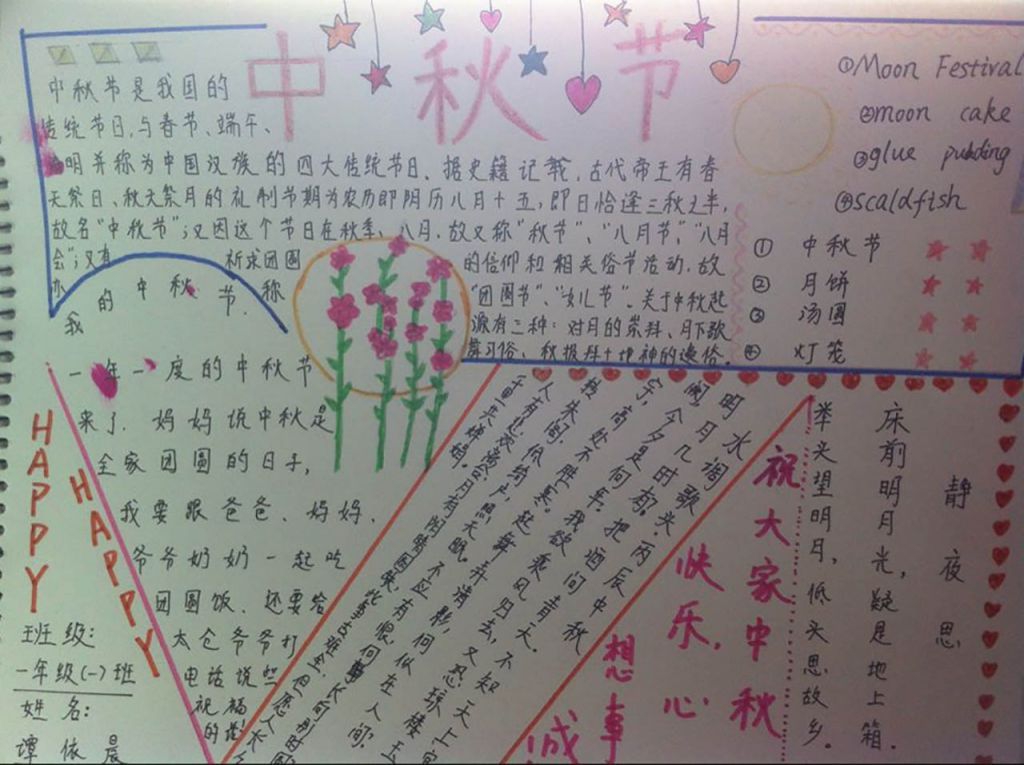 中秋节
中秋节是我国的
传统节日，与春节、端午、
清明并称为中国汉族的四大传统节日。据史籍记载，古代帝王有春
天祭日、秋天祭月的礼制节期为农历即阴历八月十五，即日恰逢三秋之半，
故名"中秋节"；又因这个节日在秋季、八月，故又称"秋节"、"八月节"、"八月
会"；又有 祈求团圆 的信仰和相关俗节活动，故
亦 的 中 秋 节，称 "团圆节"、"女儿节"。关于中秋起
我 源有三种：对月的崇拜、月下歌
舞习俗、秋报拜土地神的遗俗。
①Moon Festival
②moon cake
③glue pudding
④scaldfish
① 中秋节
② 月饼
③ 汤圆
④ 灯笼
一年一度的中秋节
来了，妈妈说中秋是
全家团圆的日子，
我要跟爸爸、妈妈、
爷爷奶奶一起吃
团圆饭，还要给
太仓爷爷打
电话说些
祝福
的话
HAPPY
HAPPY
班级：
一年级(一)班
姓名：
谭依晨
水调歌头 丙辰中秋
明月几时有，把酒问青天。不知天上宫
阙，今夕是何年。我欲乘风归去，又恐琼楼玉
宇，高处不胜寒。起舞弄清影，何似在人间。
转朱阁，低绮户，照无眠。不应有恨，何事长向别时圆
人有悲欢离合，月有阴晴圆缺，此事古难全。但愿人长久
千里共婵娟。
祝大家中秋
快乐，心
想事
成
静夜思
床前明月光，疑是地上箱。
举头望明月，低头思故乡。